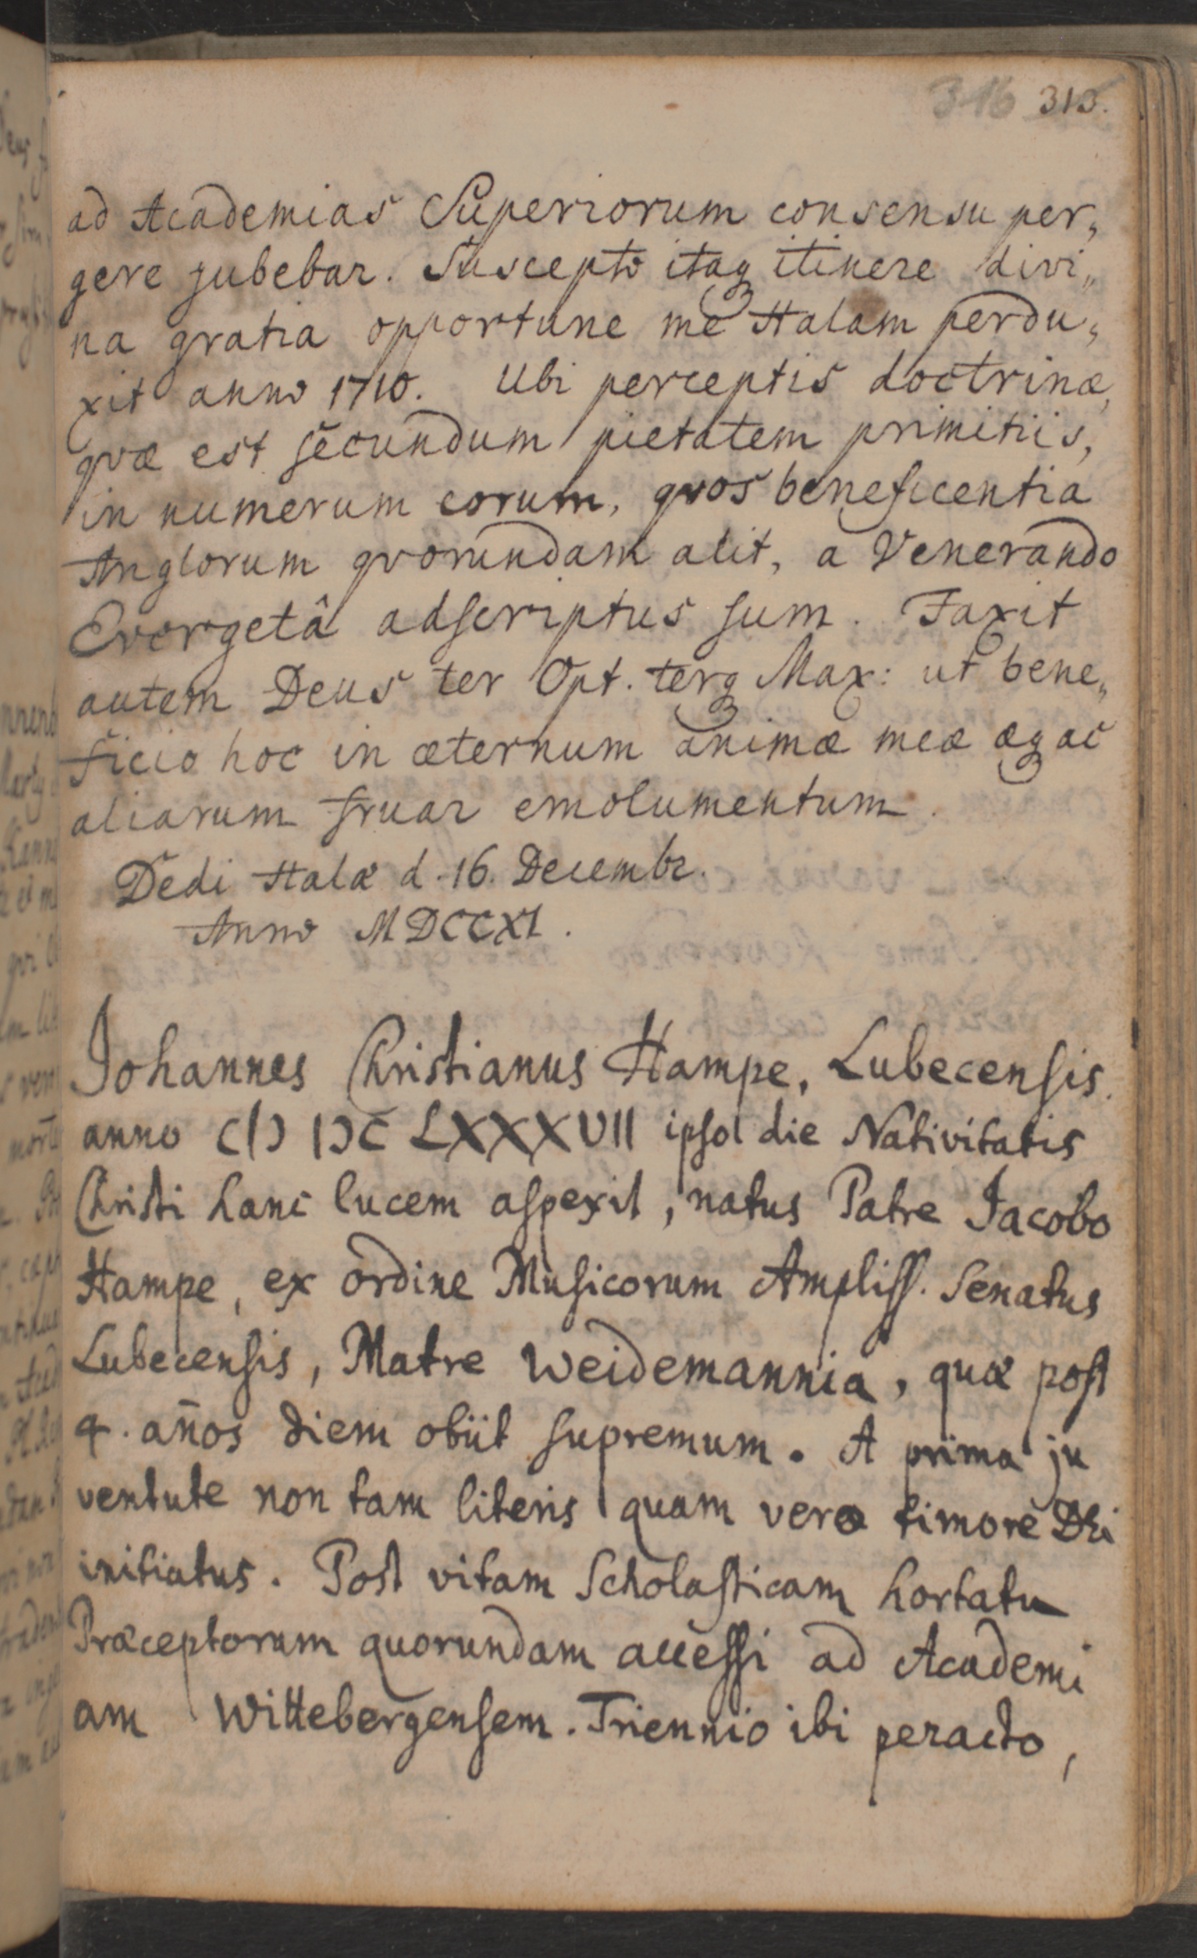 316 313.
ad Academias Superiorum consensu per„
gere jubebar. Suscepto itaq; itinere divi„
na gratia opportune me Halam perdu„
xit anno 1710. Ubi perceptis doctrinæ,
qvæ est secundum pietatem primitiis,
in numerum eorum, qvos beneficentia
Anglorum qvorundam alit, a Venerando
Evergetâ adscriptus sum. Faxit
autem Deus ter Opt. terq; Max: ut bene„
ficio hoc in æternum animæ meæ æq; ac
aliarum fruar emolumentum.
Dedi Halæ d. 16. Decembr.
Anno MDCCXI.
Johannes Christianus Hampe, Lubecensis.
anno CIↃ IↃC LXXXVII ipso die Nativitatis
Christi hanc lucem aspexit, natus Patre Jacobo
Hampe, ex ordine Musicorum Ampliss. Senatus
Lubecensis, Matre Weidemannia, quæ post
4. años diem obiit supremum. A prima ju
ventute non tam literis quam vero timore DEi
initiatus. Post vitam Scholasticam hortatu
Præceptorum quorundam accessi ad Academi
am Wittebergensem. Triennio ibi peracto,